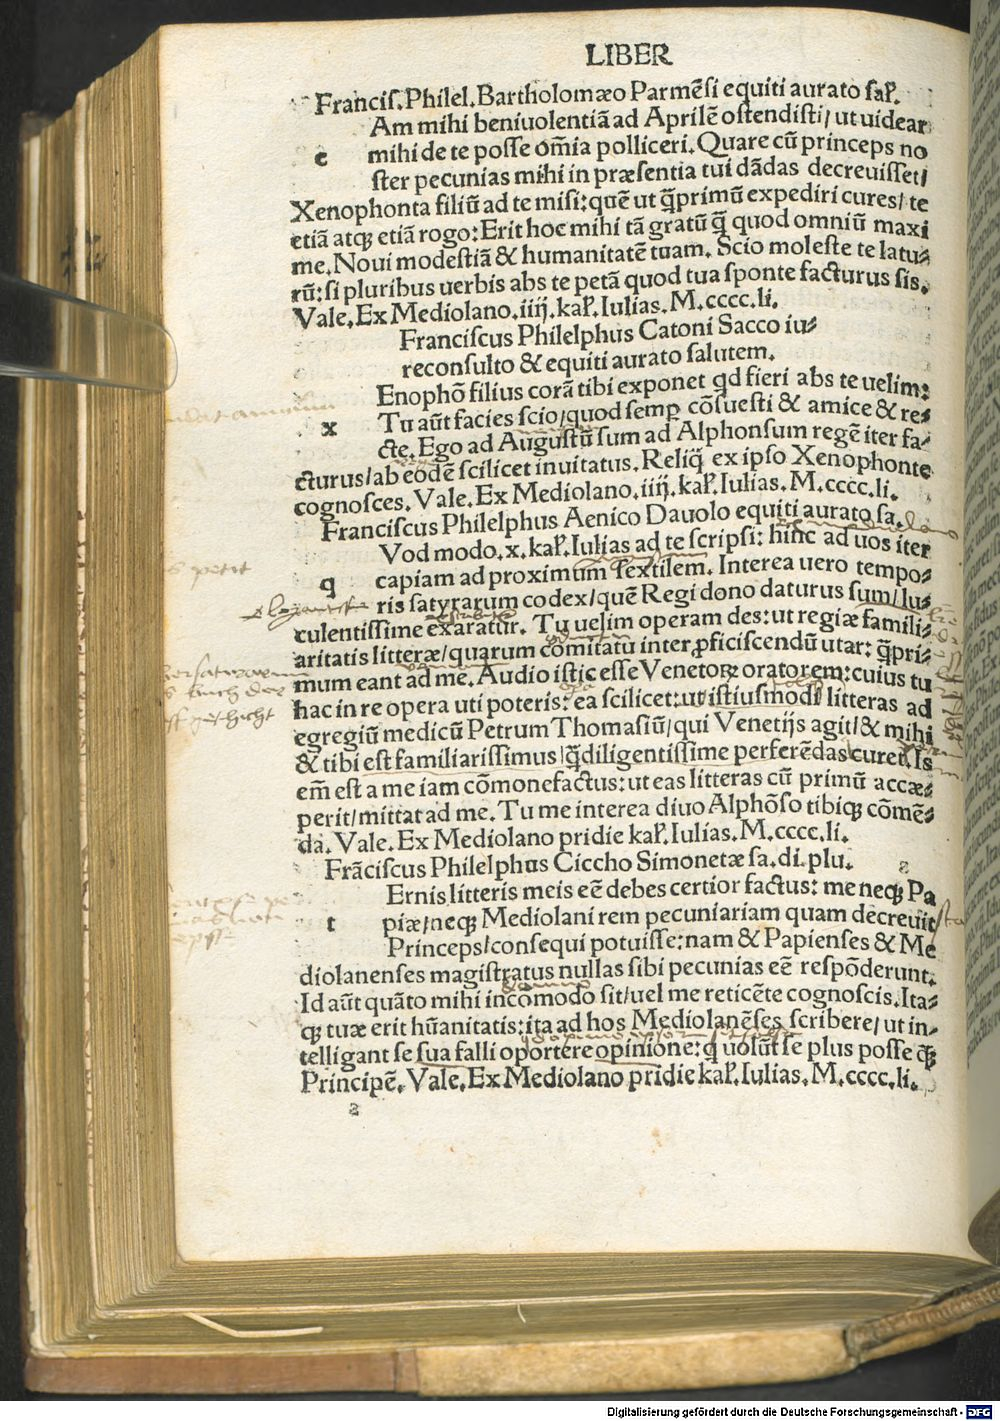 LIBER
Francis. Philel. Bartholomæo Parmẽsi equiti aurato sal̃.
Am mihi beniuolentiã ad Aprilẽ ostendisti/ ut uidear
e mihi de te posse om̃ia polliceri. Quare cũ princeps no
ster pecunias mihi in præsentia tui dãdas decreuisset/
Xenophonta filiũ ad te misi: quẽ ut q̃primũ expediri cures/ te
etiã atqꝫ etiã rogo: Erit hoc mihi tã gratũ q̃ quod omniũ maxi
me. Noui modestiã & humanitatẽ tuam. Scio moleste te latu⸗
rũ: si pluribus uerbis abs te petã quod tua sponte facturus sis.
Vale. Ex Mediolano. iiij. kal̃. Iulias. M. cccc. li.
Franciscus Philelphus Catoni Sacco iu⸗
reconsulto & equiti aurato salutem.
Enophõ filius corã tibi exponet qd fieri abs te uelim:
x Tu aũt facies scio/ quod semꝑ cõsuesti & amice & re⸗
cte. Ego ad Augustũ sum ad Alphonsum regẽ iter fa⸗
cturus/ ab eodẽ scilicet inuitatus. Reliq̃ ex ipso Xenophonte
cognosces. Vale. Ex Mediolano. iiij. kal̃. Iulias. M. cccc. li.
Franciscus Philelphus Aenico Dauolo equiti aurato sa.
Vod modo. x. kal̃. Iulias ad te scripsi: hĩc ad uos iter
q capiam ad proximum sextilem. Interea uero tempo⸗
ris satyrarum codex/ quẽ Regi dono daturus sum/ lu⸗
culentissime exaratur. Tu uelim operam des: ut regiæ famili⸗
aritatis litteræ/ quarum comitatu inter ꝓficiscendũ utar: q̃pri⸗
mum eant ad me. Audio istic esse Venetoꝝ oratorem: cuius tu
hac in re opera uti poteris: ea scilicet: ut istiusmodi litteras ad
egregiũ medicũ Petrum Thomasiũ/ qui Venetijs agit/ & mihi
& tibi est familiarissimus/ q̃diligentissime perferẽdas curet. Is
em̃ est a me iam cõmonefactus: ut eas litteras cũ primũ accæ⸗
perit/ mittat ad me. Tu me interea diuo Alphõso tibiqꝫ cõmẽ⸗
da. Vale. Ex Mediolano pridie kal̃. Iulias. M. cccc. li.
Frãciscus Philelphus Ciccho Simonetæ sa. di. plu.
Ernis litteris meis eẽ debes certior factus: me neqꝫ Pa
t piæ/ neqꝫ Mediolani rem pecuniariam quam decreuit
Princeps/ consequi potuisse: nam & Papienses & Me
diolanenses magistratus nullas sibi pecunias eẽ respõderunt.
Id aũt quãto mihi incõmodo sit/ uel me reticẽte cognoscis. Ita⸗
qꝫ tuæ erit hũanitatis: ita ad hos Mediolanẽses scribere/ ut in⸗
telligant se sua falli oportere opinione: q̃ uolũt se plus posse qꝫ
Principẽ. Vale. Ex Mediolano pridie kal̃. Iulias. M. cccc. li.
petit
Digitalisierung gefördert durch die Deutsche Forschungsgemeinschaft - DFG